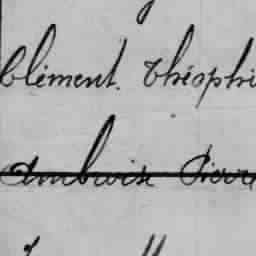 Clément. Théophi
Ambroise Pierre